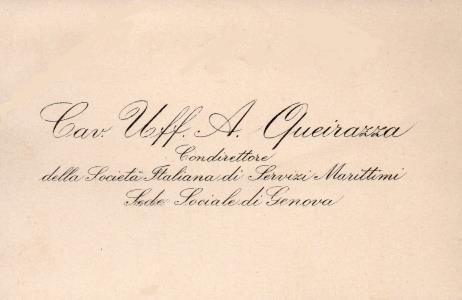 Cav. Uff. A. Queirazza
Condirettore
della Società Italiana di Servizi Marittimi
Sede Sociale di Genova